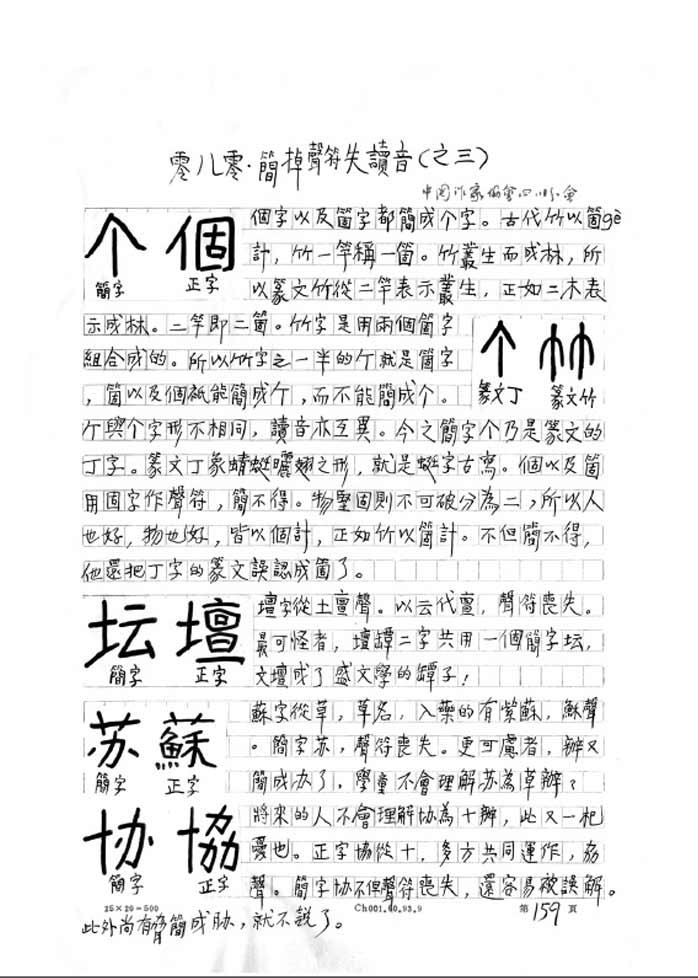 零八零·簡掉聲符失讀音(之三)
中国作家協會四川分會
个 個
簡字 正字
個字以及箇字都簡成个字。古代竹以箇gè
計，竹一竿稱一箇。竹叢生而成林，所
以篆文竹從二竿表示叢生，正如二木表
示成林。二竿即二箇。竹字是用兩個箇字
組合成的。所以竹字之一半的亇就是箇字
，箇以及個祇能簡成亇，而不能簡成个。
篆文丁 篆文竹
亇與个字形不相同，讀音亦互異。今之簡字个乃是篆文的
丁字。篆文丁象蜻蜓曬翅之形，就是蜓字古寫。個以及箇
用固字作聲符，簡不得。物堅固則不可破分為二，所以人
也好，物也好，皆以個計，正如竹以箇計。不但簡不得，
他還把丁字的篆文誤認成箇了。
坛 壇
簡字 正字
壇字從土亶聲。以云代亶，聲符喪失。
最可怪者，壇罈二字共用一個簡字坛，
文壇成了盛文學的罈子！
苏 蘇
簡字 正字
蘇字從草，草名，入藥的有紫蘇，穌聲
。簡字苏，聲符喪失。更可慮者，辦又
簡成办了，學童不會理解苏為草辦？
协 協
簡字 正字
將來的人不會理解协為十辦，此又一杞
憂也。正字協從十，多方共同運作，劦
聲。簡字协不但聲符喪失，還容易被誤解。
25×20=500 Ch001.40.93.9 第159頁
此外尚有脅簡成胁，就不說了。